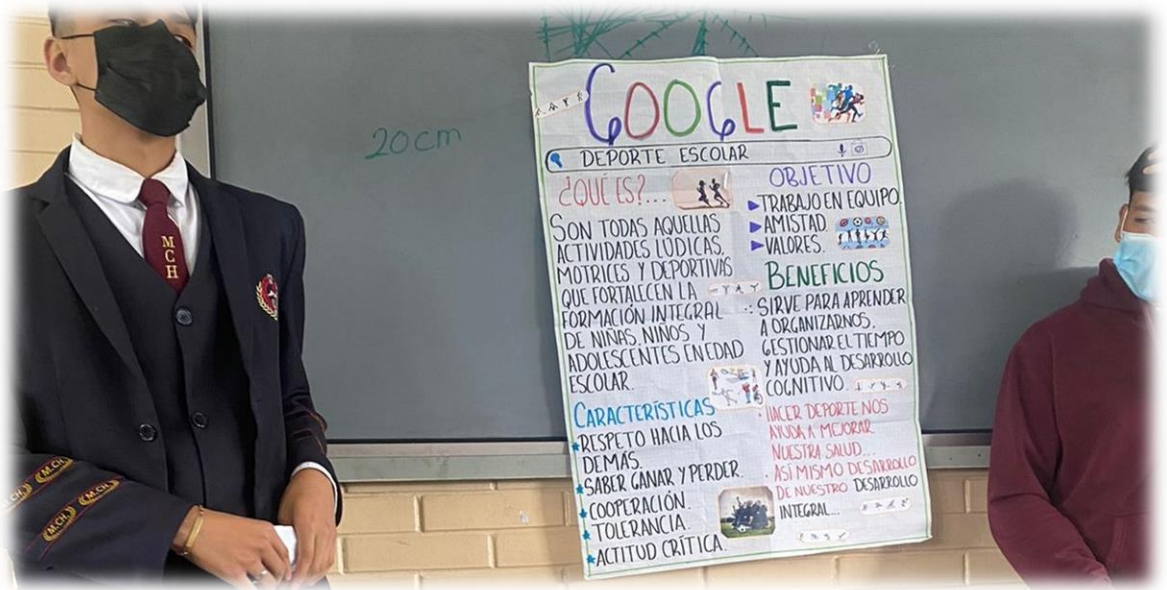 20cm
GOOGLE
DEPORTE ESCOLAR
¿QUÉ ES?...
SON TODAS AQUELLAS
ACTIVIDADES LÚDICAS,
MOTRICES Y DEPORTIVAS
QUE FORTALECEN LA
FORMACIÓN INTEGRAL
DE NIÑAS, NIÑOS Y
ADOLESCENTES EN EDAD
ESCOLAR.
CARACTERÍSTICAS
RESPETO HACIA LOS
DEMÁS.
SABER GANAR Y PERDER.
COOPERACIÓN.
TOLERANCIA.
ACTITUD CRÍTICA.
OBJETIVO
TRABAJO EN EQUIPO.
AMISTAD.
VALORES.
BENEFICIOS
SIRVE PARA APRENDER
A ORGANIZARNOS,
GESTIONAR EL TIEMPO
Y AYUDA AL DESARROLLO
COGNITIVO.
HACER DEPORTE NOS
AYUDA A MEJORAR
NUESTRA SALUD...
ASÍ MISMO DESARROLLO
DE NUESTRO DESARROLLO
INTEGRAL...
M
C
H
M.CH.
M.CH.
M.CH.
M.CH.